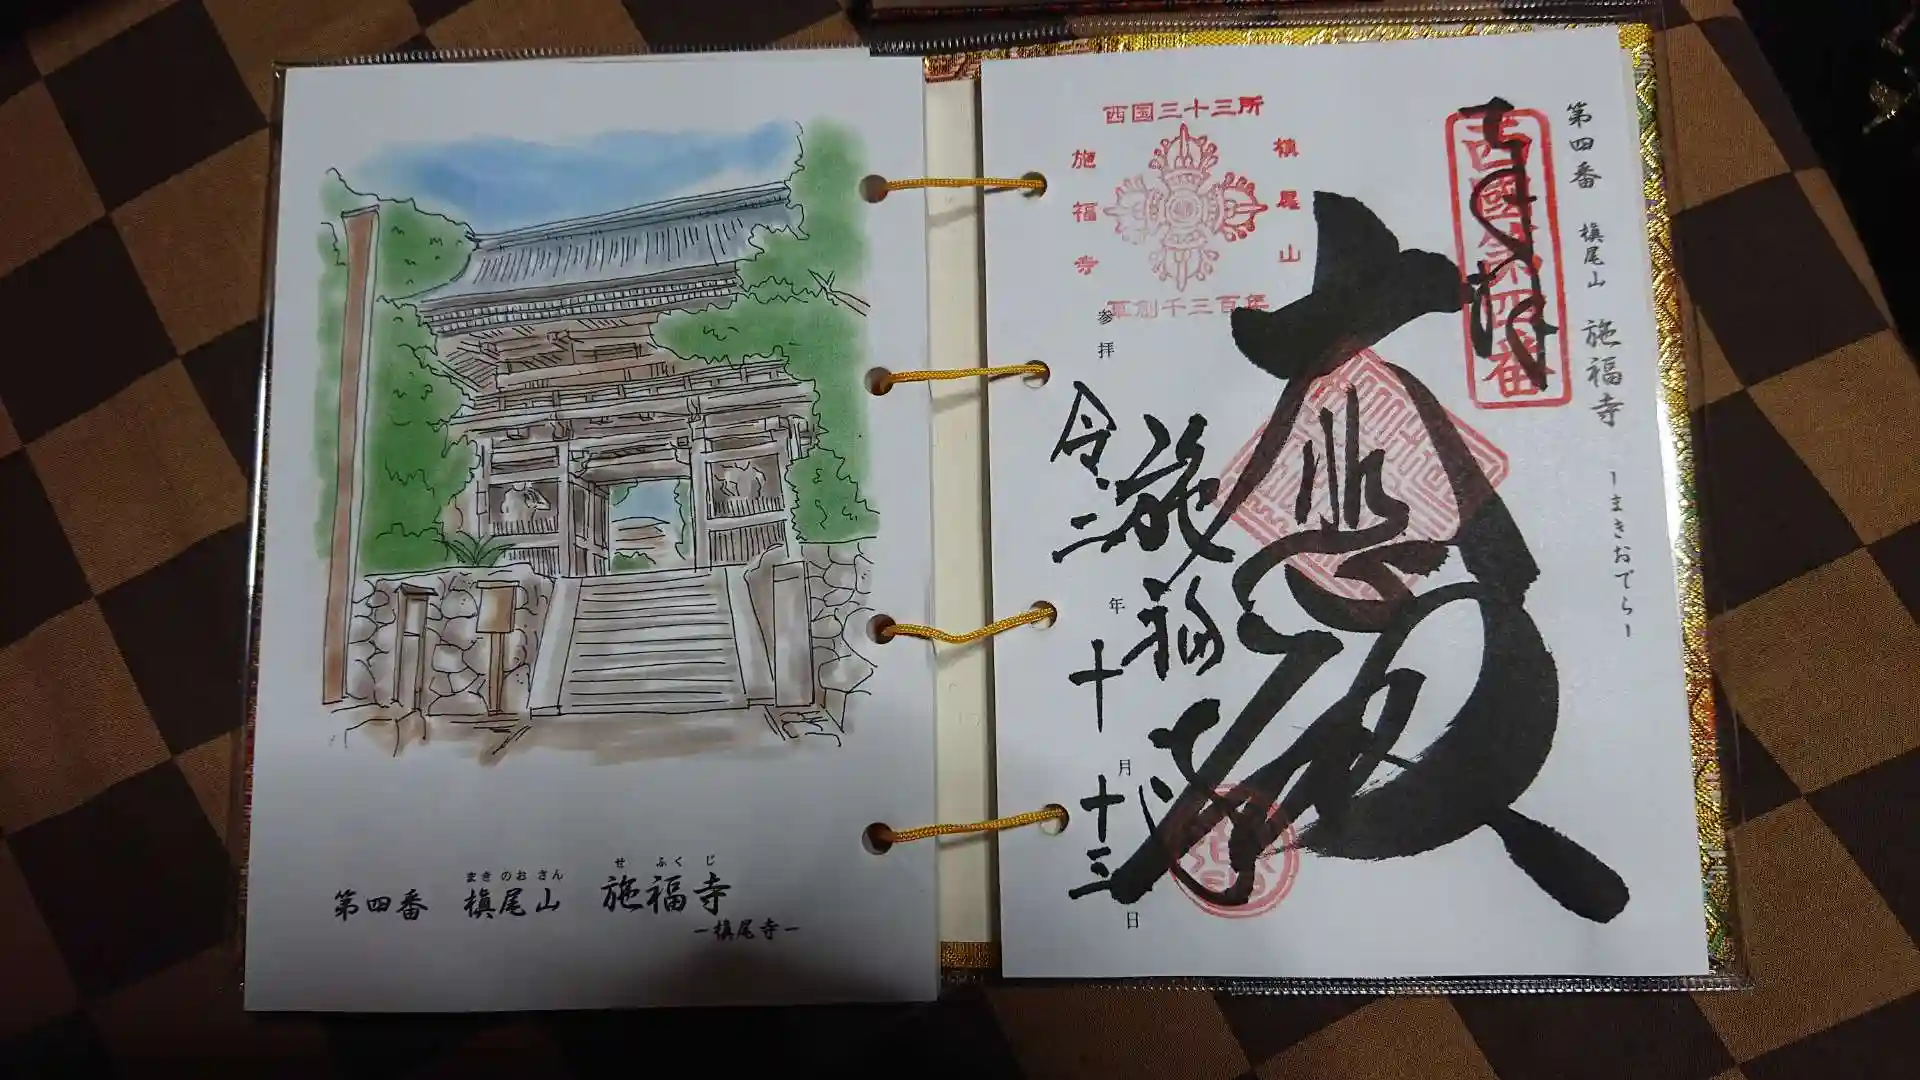 第四番 槇尾山 施福寺
まきのおさん せふくじ
－槇尾寺－
第四番 槇尾山 施福寺 －まきおでら－
西國第四番
奉拝
大悲殿
西国三十三所
槇尾山
施福寺
草創千三百年
参拝
施福寺
令二年十月十三日